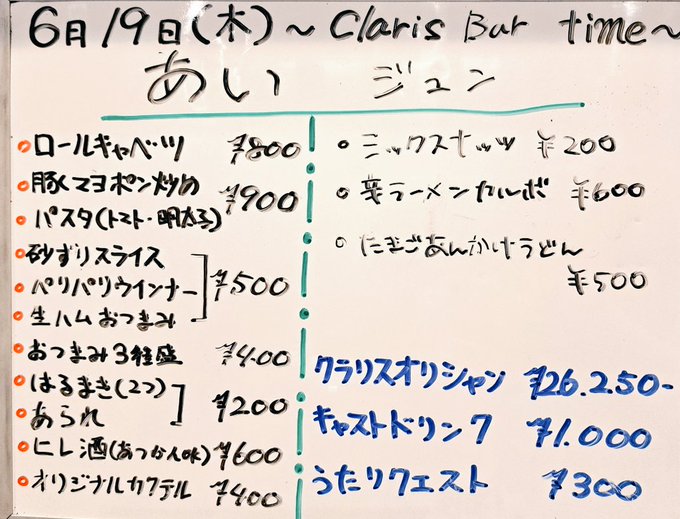 6月19日(木)～Claris Bar time～
あい
ジュン
ロールキャベツ ¥800
豚マヨポン炒め ¥900
パスタ(トマト・明太子)
砂ずりスライス
パリパリウインナー ¥500
生ハムおつまみ
おつまみ3種盛 ¥400
はるまき(2つ) ¥200
あられ
ヒレ酒(あつかん) ¥600
オリジナルカクテル ¥400
ミックスナッツ ¥200
辛ラーメンカルボ ¥600
たまごあんかけうどん
¥500
クラリスオリシャン ¥26.250-
キャストドリンク ¥1.000
うたリクエスト ¥300